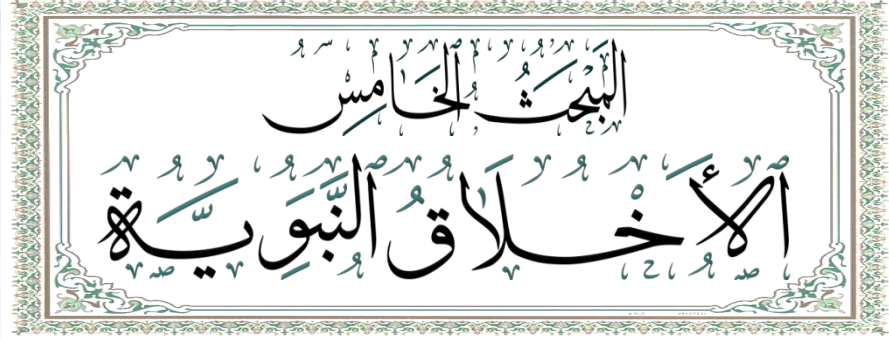 المَبْحَثُ الخَامِسْ
الأَخْلَاقُ النَّبَوِيَّة